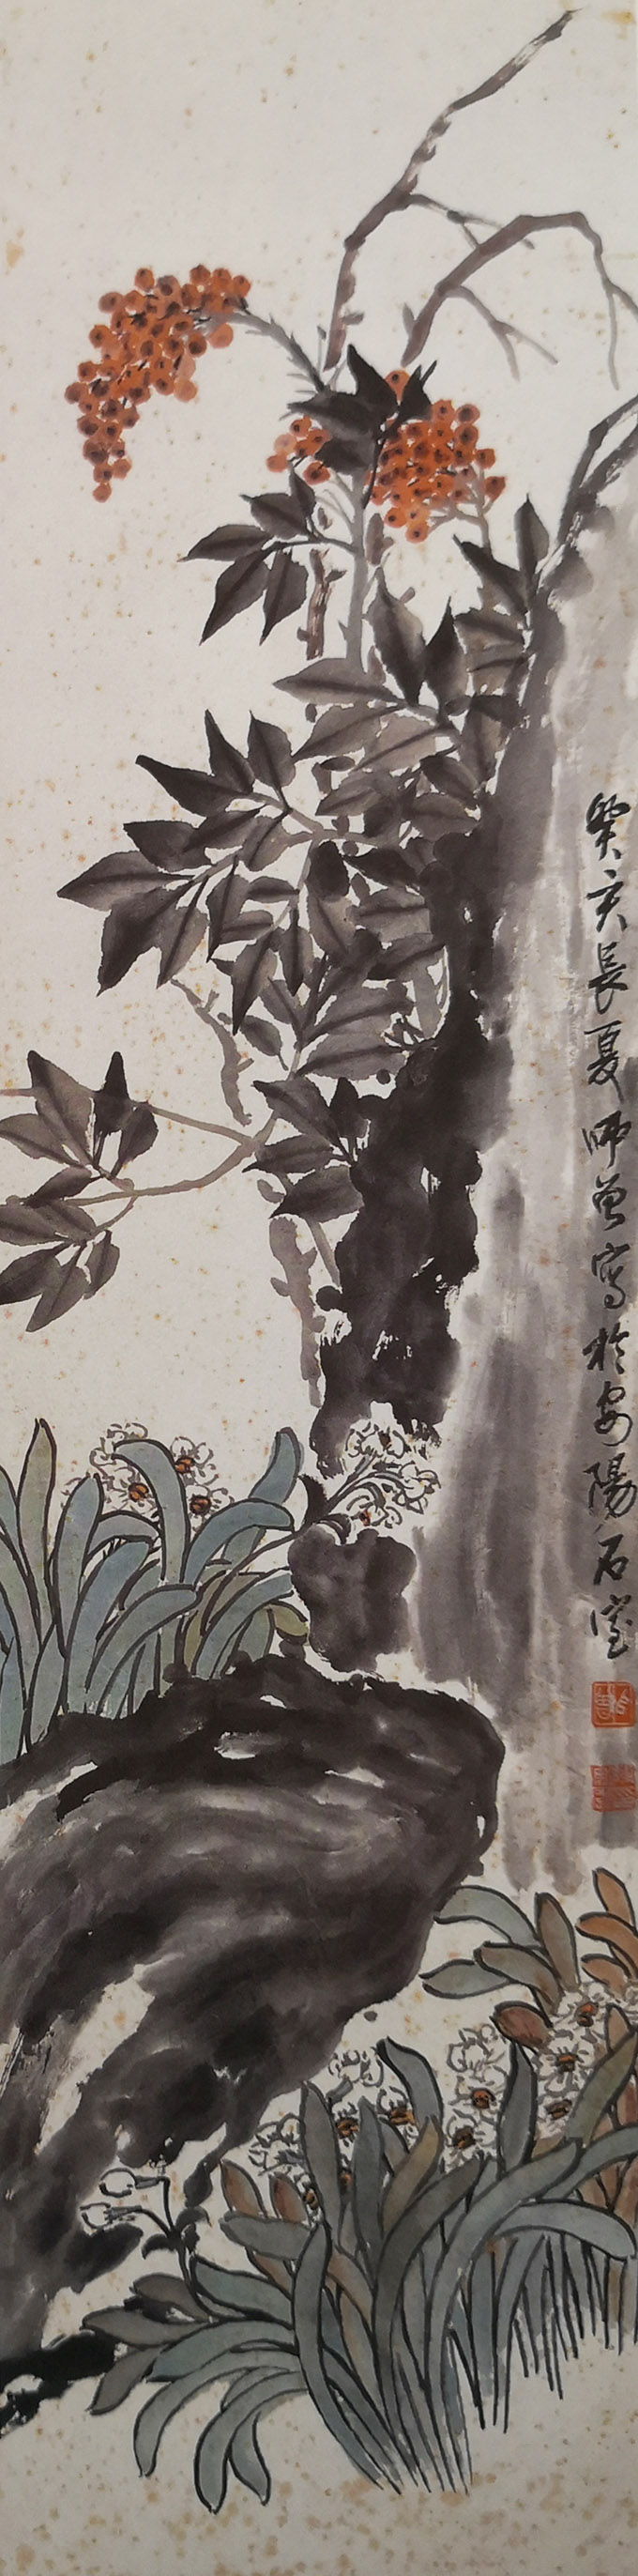 癸亥長夏師曾寫於安陽石室